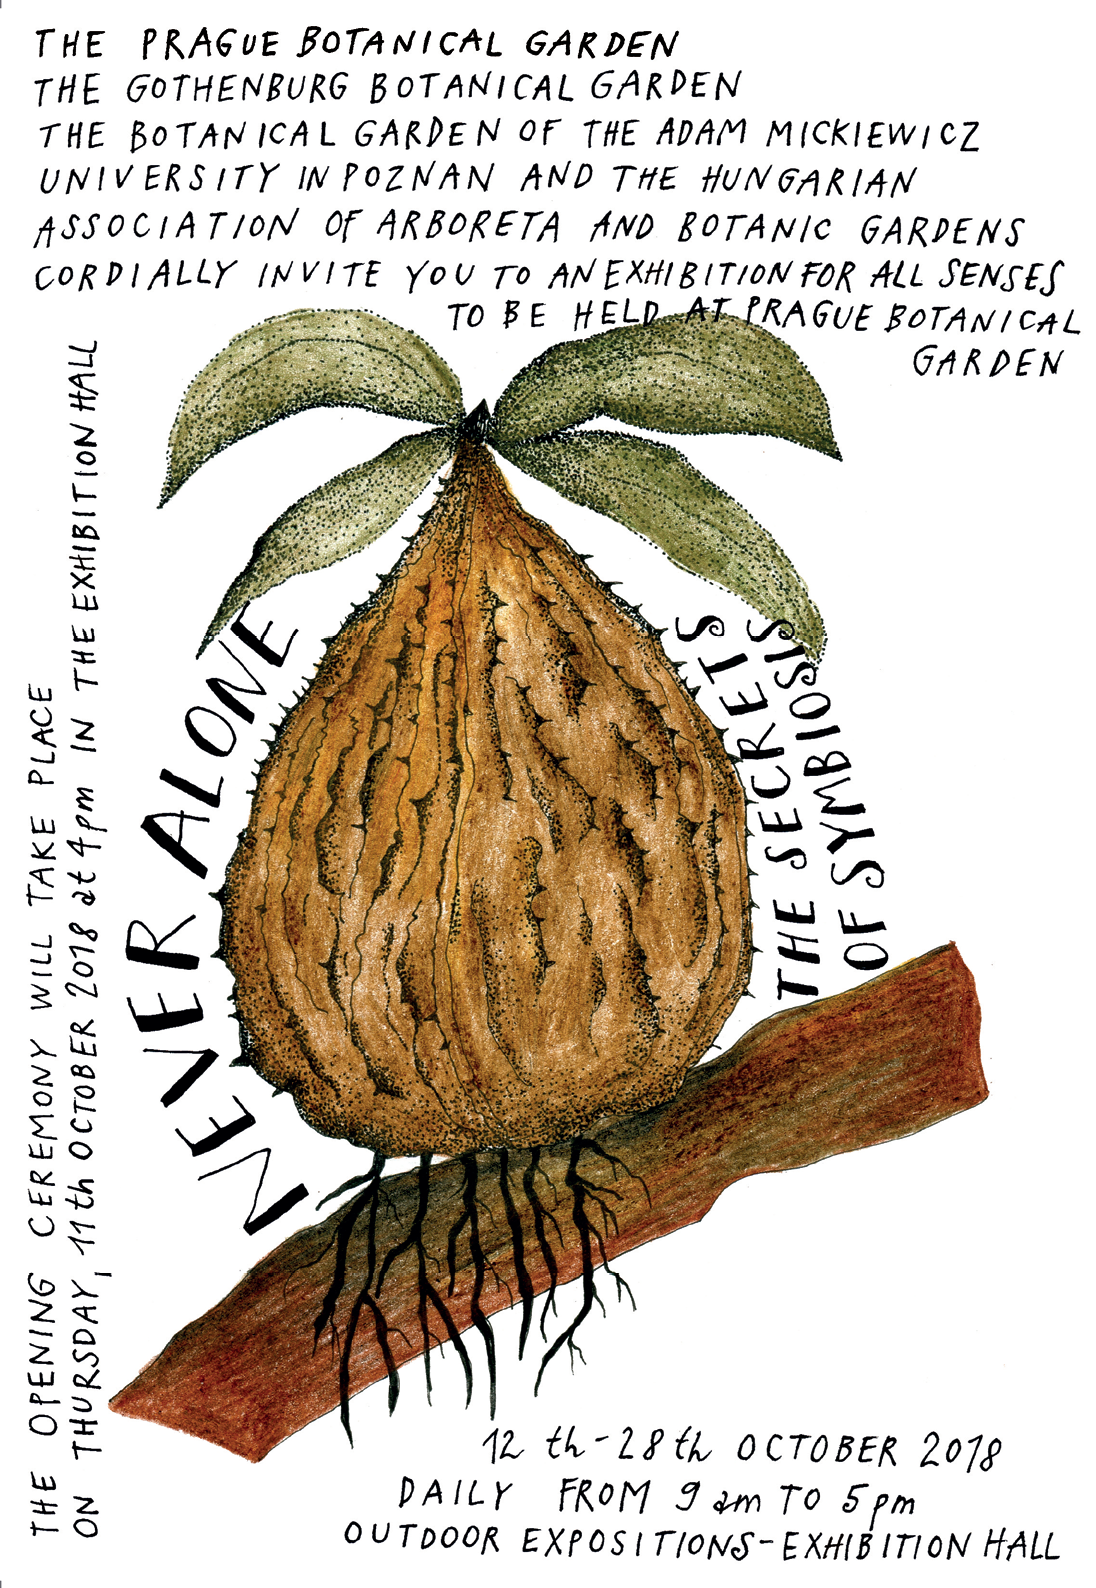 THE PRAGUE BOTANICAL GARDEN
THE GOTHENBURG BOTANICAL GARDEN
THE BOTANICAL GARDEN OF THE ADAM MICKIEWICZ
UNIVERSITY IN POZNAN AND THE HUNGARIAN
ASSOCIATION OF ARBORETA AND BOTANIC GARDENS
CORDIALLY INVITE YOU TO AN EXHIBITION FOR ALL SENSES
TO BE HELD AT PRAGUE BOTANICAL
GARDEN
THE OPENING CEREMONY WILL TAKE PLACE
ON THURSDAY, 11th OCTOBER 2018 at 4pm IN THE EXHIBITION HALL
NEVER ALONE
THE SECRETS
OF SYMBIOSIS
12 th-28th OCTOBER 2018
DAILY FROM 9 am TO 5pm
OUTDOOR EXPOSITIONS-EXHIBITION HALL